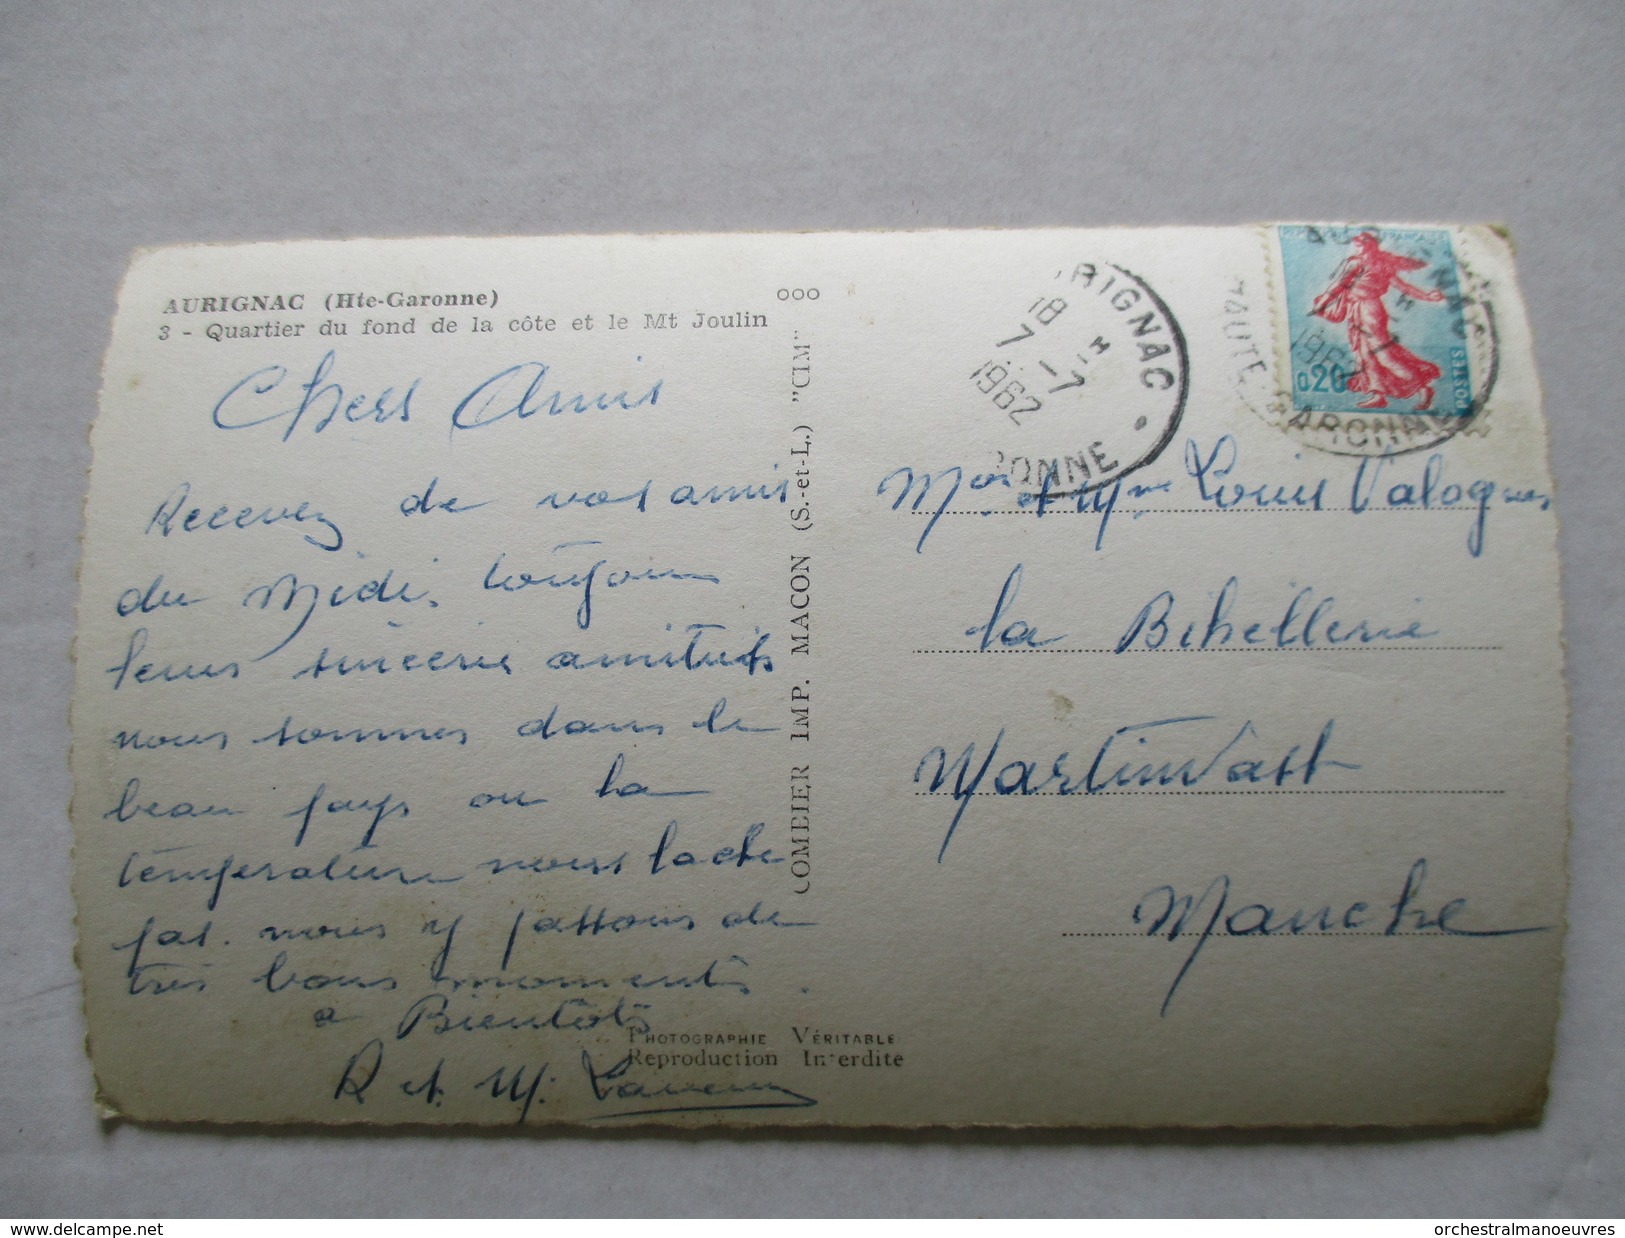 AURIGNAC (Hte-Garonne)
3 - Quartier du fond de la côte et le Mt Joulin
Chers Amis
Recevez de vos amis
du Midi, toujours
leurs sincère amitiés
nous sommes dans le
beau pays ou la
température nous lache
pas. nous y passons de
très bons moments.
a Bientôt
R et M.
PHOTOGRAPHIE VÉRITABLE
Reproduction Interdite
COMBIER IMP. MACON (S.-et-L.) "CIM"
ooo
RIGNAC
18 H
7 - 7
1962
RONNE
REPUBLIQUE FRANÇAISE
0,20
POSTES
HAUTE GARONNE
1962
Mor et Mme Louis Valognes
la Bihellerie
Martinvast
Manche
delcampe.net
orchestralmanoeuvres